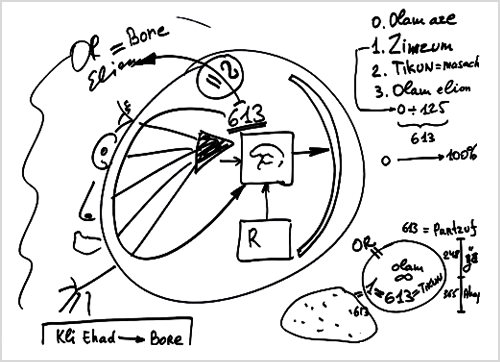 OR = Bore
Elion
= 2
613
R
Kli Ehad → Bore
0. Olam aze
1. Zimzum
2. TiKUN = masach
3. Olam elion
0 ÷ 125
613
0 → 100%
613 = Partzuf
OR
olam
∞
= 1 = 613 = TIKUN
613
248 g"e
365 Ahap